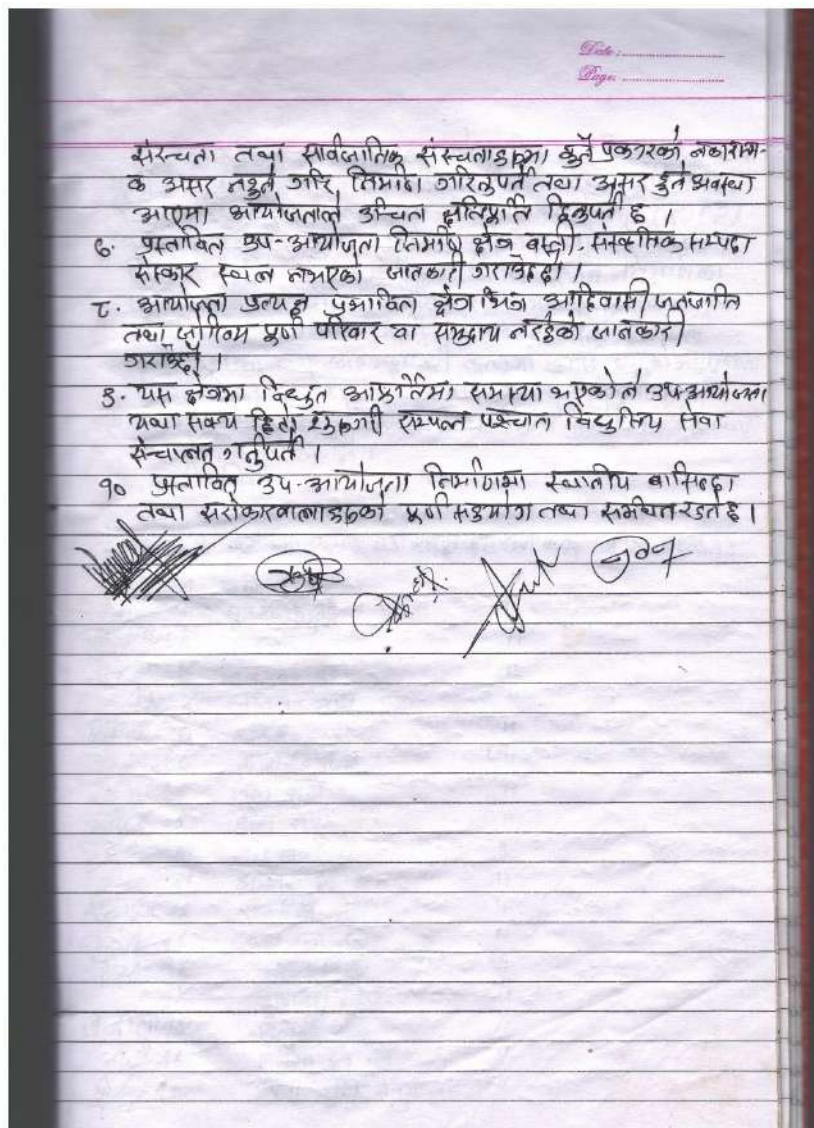 Date :
Page:
संरचना तथा सार्वजानिक संरचनाहरुमा कुनै प्रकारको नकारात्म-
क असर नहुने गरि निर्माण गरिनुपर्ने तथा असर हुने अवस्था
आएमा आयोजनाले उचित क्षतिपूर्ति दिनुपर्ने छ ।
७. प्रस्तावित उप-आयोजना निर्माण क्षेत्र वस्ती, संस्कृतिक सम्पदा
संस्कार स्थल नभएको जानकारी गराउँदछौ ।
८. आयोजना प्रत्यक्ष प्रभावित क्षेत्र भित्र आदिवासी जनजाति
तथा जोखिम पूर्ण परिवार वा समुदाय नरहेको जानकारी
गराउँछौ ।
९. यस क्षेत्रमा विद्युत आपूर्तिमा समस्या भएकोले उप-आयोजना
यथा सक्य छिटो सम्पन्न पश्चात विद्युतिय सेवा
संचालन गर्नुपर्ने ।
१० प्रस्तावित उप-आयोजना निर्माणमा स्थानीय बासिन्दा
तथा सरोकारवालाहरुको पूर्ण सहयोग तथा समर्थन रहने छ ।